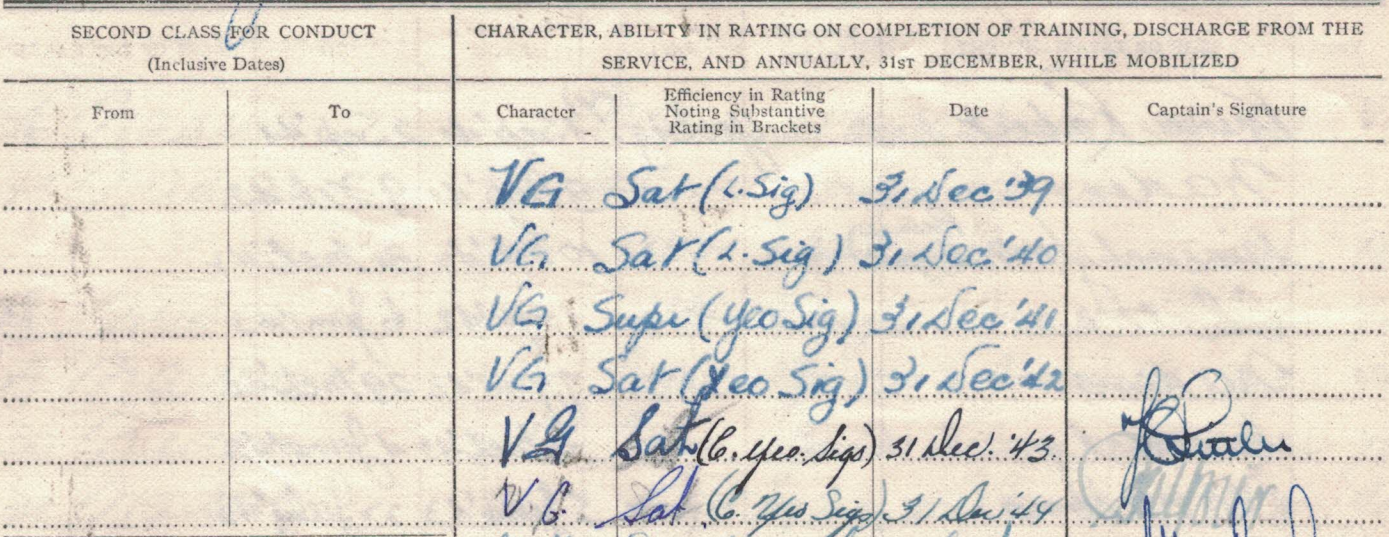 SECOND CLASS FOR CONDUCT
(Inclusive Dates)
CHARACTER, ABILITY IN RATING ON COMPLETION OF TRAINING, DISCHARGE FROM THE
SERVICE, AND ANNUALLY, 31ST DECEMBER, WHILE MOBILIZED
From To Character Efficiency in Rating Noting Substantive Rating in Brackets Date Captain's Signature
VG Sat (L. Sig) 31 Dec '39
VG Sat (L. Sig) 31 Dec '40
VG Supr (Yeo Sig) 31 Dec '41
VG Sat (Yeo Sig) 31 Dec '42
VG Sat (C. Yeo. Sigs) 31 Dec. '43
V.G. Sat. (C. Yeo Sigs) 31 Dec '44